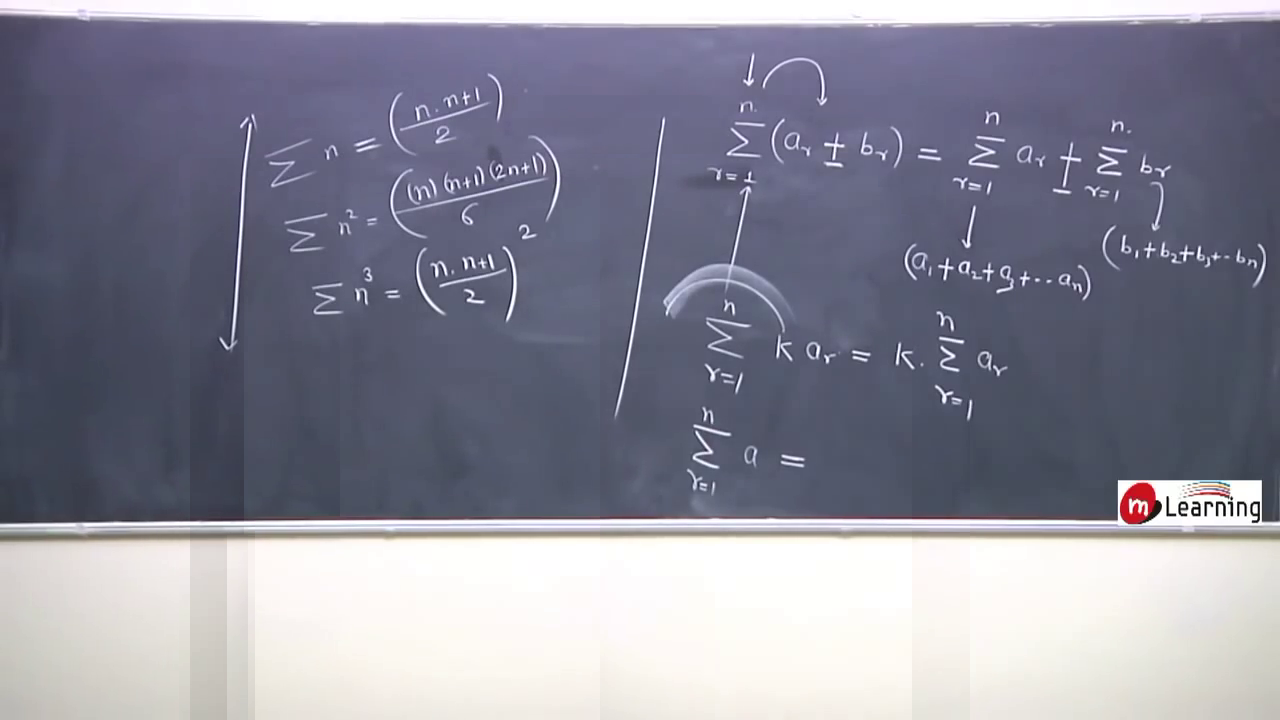 ∑ n = (n. n+1 / 2)
∑ n² = ((n) (n+1) (2n+1) / 6)
∑ n³ = (n. n+1 / 2)²
n. ∑ r=1 (aᵣ ± bᵣ) = n ∑ r=1 aᵣ ± n. ∑ r=1 bᵣ
(a₁+a₂+a₃+..aₙ)
(b₁+b₂+b₃+..bₙ)
n ∑ r=1 k aᵣ = k. n ∑ r=1 aᵣ
n ∑ r=1 a =
m Learning